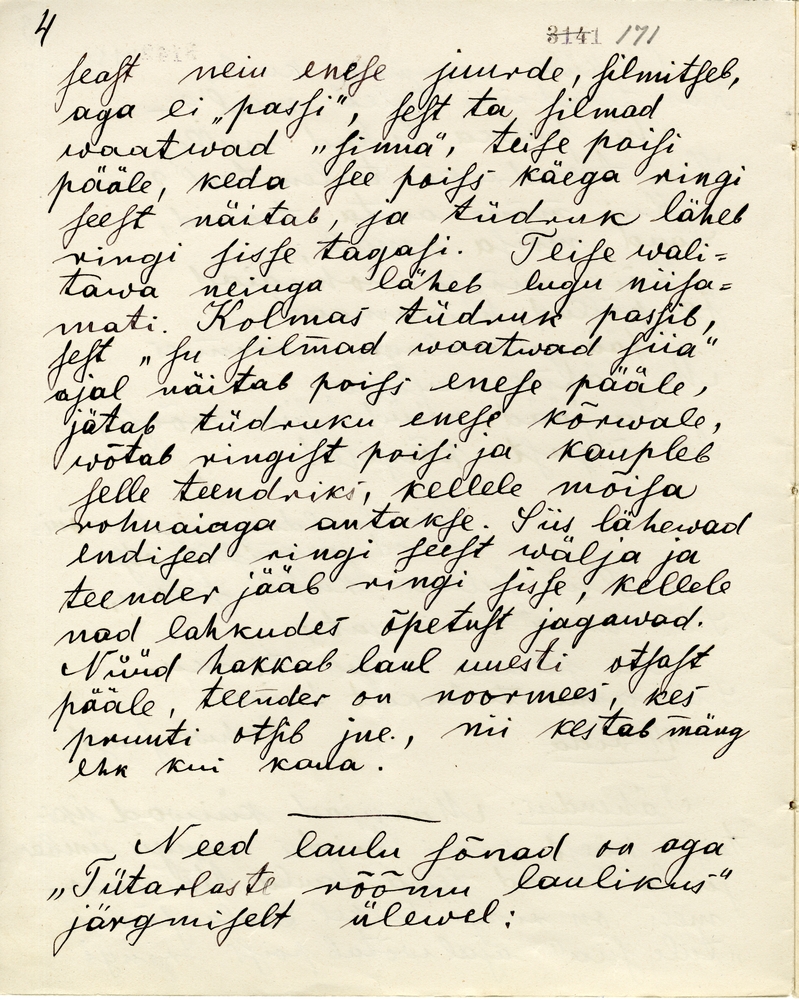 4
3141 171
seast neiu enese juurde, silmitseb,
aga ei „passi“, sest ta silmad
waatwad „sinna“, teise poisi
pääle, keda see poiss käega ringi
seest näitab, ja tüdruk läheb
ringi sisse tagasi. Teise wali=
tawa neiuga läheb lugu niisa=
mati. Kolmas tüdruk passib,
sest „su silmad waatwad siia“
ajal näitab poiss enese pääle,
jätab tüdruku enese kõrwale,
wõtab ringist poisi ja kaupleb
selle teendriks, kellele mõisa
rohuaiaga antakse. Siis lähewad
endised ringi seest wälja ja
teender jääb ringi sisse, kellele
nad lahkudes õpetust jagawad.
Nüüd hakkab laul uuesti otsast
pääle, teender on noormees, kes
pruuti otsib jne., nii kestab mäng
ehk kui kaua.
Need laulu sõnad on aga
„Tütarlaste rõõmu laulikus“
järgmiselt ülewel: